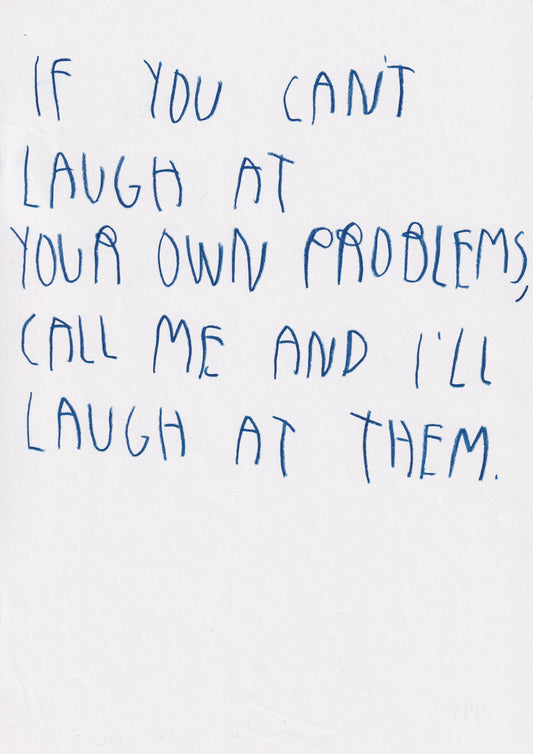 IF YOU CAN'T
LAUGH AT
YOUR OWN PROBLEMS,
CALL ME AND I'LL
LAUGH AT THEM.